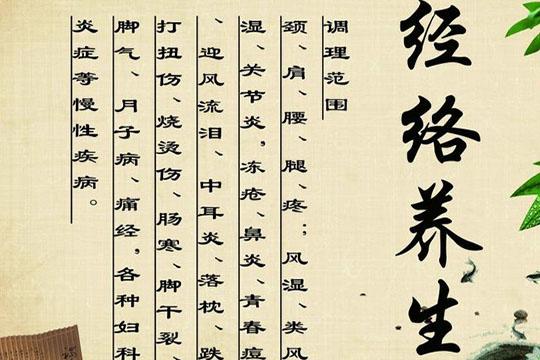 经络养生
调理范围
颈、肩、腰、腿、疼；风湿、类风
湿、关节炎，冻疮、鼻炎、青春痘
、迎风流泪、中耳炎、落枕、跌
打扭伤、烧烫伤、肠寒、脚干裂、
脚气、月子病、痛经，各种妇科
炎症等慢性疾病。